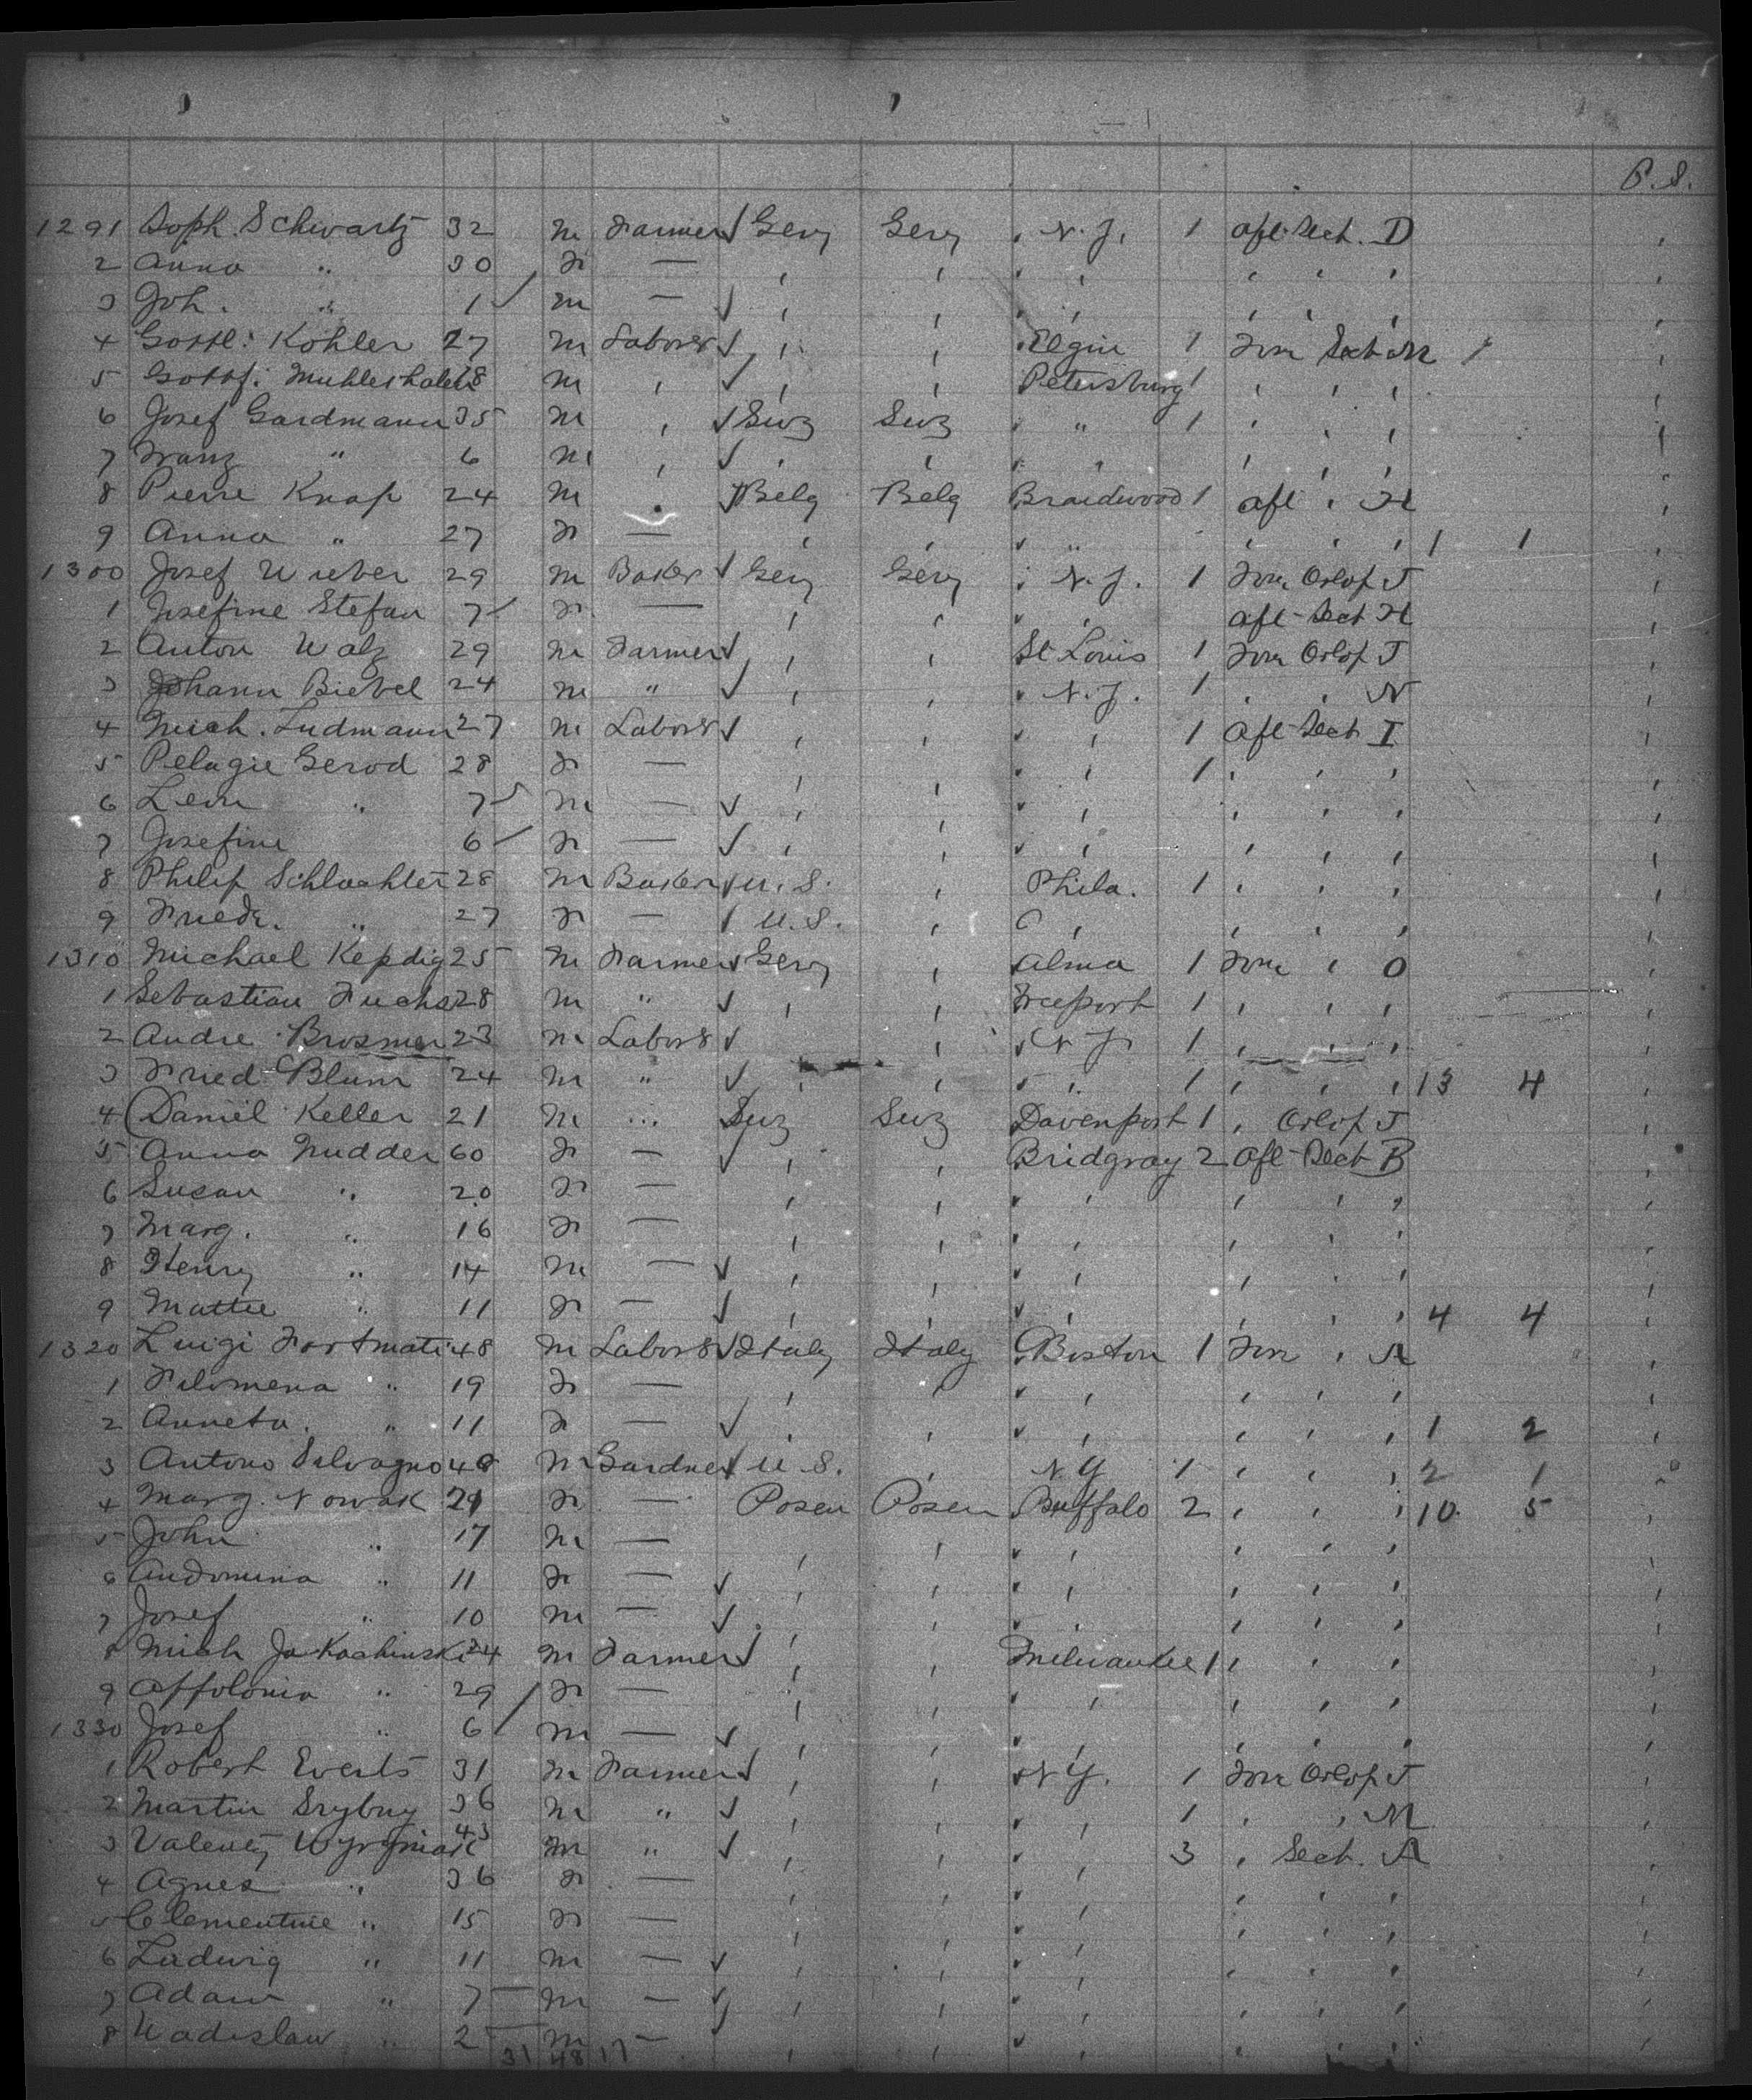 P.S.
1291 Soph. Schwartz 32 m Farmer Gery Gery " N.J. 1 aft Sect. D
2 Anna " 30 f — " " " " " " "
3 Joh. " 1 m — " " " " " " "
4 Gottl: Kohler 27 m Laborer " " Elgin 1 Forr Sect M 1
5 Gottf: m " " " Petersburg 1 " " "
6 Josef Gardmann 35 m " Swz Swz " " 1 " " "
7 Franz " 6 m " " " " " " " "
8 Pierre Knap 24 m " Belg Belg Braidwood 1 aft " H
9 Anna " 27 f — " " " " " " " 1 1
1300 Josef Weber 29 m Baker Gery Gery " N.J. 1 Forr Orlop J
1 Josefine Stefan 7 f — " " " " aft Sect H
2 Anton Walz 29 m Farmer " " St Louis 1 Forr Orlop J
3 Johann Biebel 24 m " " " " N.J. 1 " " N
4 Mich. Ludmann 27 m Laborer " " " " 1 aft Sect I
5 Pelagie Gerod 28 f — " " " " 1 " " "
6 " 7 m — " " " " " " "
7 Josefine 6 f — " " " " " " "
8 Philip Schlachter 28 m Baker U.S. " Phila. 1 " " "
9 Friedr. " 27 f — U.S. " " " " " "
1310 Michael Kepdig 25 m Farmer Gery " Alma 1 Forr " O
1 Sebastian Fuchs 28 m " " " Freeport 1 " " "
2 Andre Brosmer 23 m Labor8 " " N J 1 " " "
3 Fried Blum 24 m " " " " " 1 " " " 13 4
4 Daniel Keller 21 m " Swz Swz Davenport 1 " Orlop J
5 Anna Nudder 60 f — " " Bridgray 2 aft Sect B
6 Susan " 20 f — " " " " " " "
7 Marg. " 16 f — " " " " " " "
8 Henry " 14 m — " " " " " " "
9 Mattie " 11 f — " " " " " " " 4 4
1320 Luigi Fortmati 48 m Labor8 Italy Italy Boston 1 Forr " A
1 Filomena " 19 f — " " " " " " "
2 Anneta " 11 f — " " " " " " " 1 2
3 Antono Salvagno 48 m Gardner U.S. " N.Y 1 " " " 2 1
4 Marg. Nowak 29 f — Posen Posen Buffalo 2 " " " 10 5
5 John " 17 m — " " " " " " "
6 Andomina " 11 f — " " " " " " "
7 Josef " 10 m — " " " " " " "
8 Mich Jakachinski 24 m Farmer " " Milwaukee 1 " " "
9 Appolonia " 29 f — " " " " " " "
1330 Josef " 6 m — " " " " " " "
1 Robert Everts 31 m Farmer " " N.Y. 1 Forr Orlop J
2 Martin Srybny 36 m " " " " " 1 " " M
3 Valenty 43 m " " " " " 3 " Sect. A
4 Agnes " 36 f — " " " " " " "
5 Clementine " 15 f — " " " " " " "
6 Ludwig " 11 m — " " " " " " "
7 Adam " 7 m — " " " " " " "
8 Wadislaw " 2 m — " " " " " " "
31 48 17